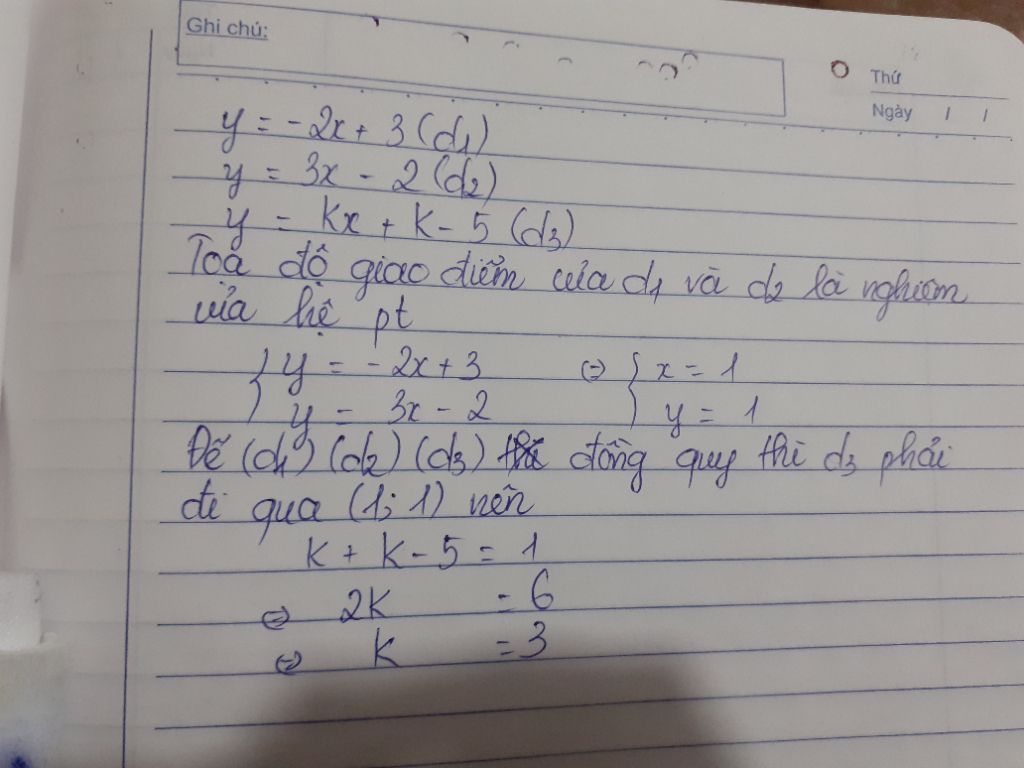 Ghi chú:
Thứ
Ngày / /
y = -2x + 3 (d1)
y = 3x - 2 (d2)
y = kx + k - 5 (d3)
Toạ độ giao điểm của d1 và d2 là nghiệm
của hệ pt
{ y = -2x + 3 <=> { x = 1
y = 3x - 2 y = 1
Để (d1) (d2) (d3) đồng quy thì d3 phải
đi qua (1; 1) nên
k + k - 5 = 1
<=> 2k = 6
<=> k = 3